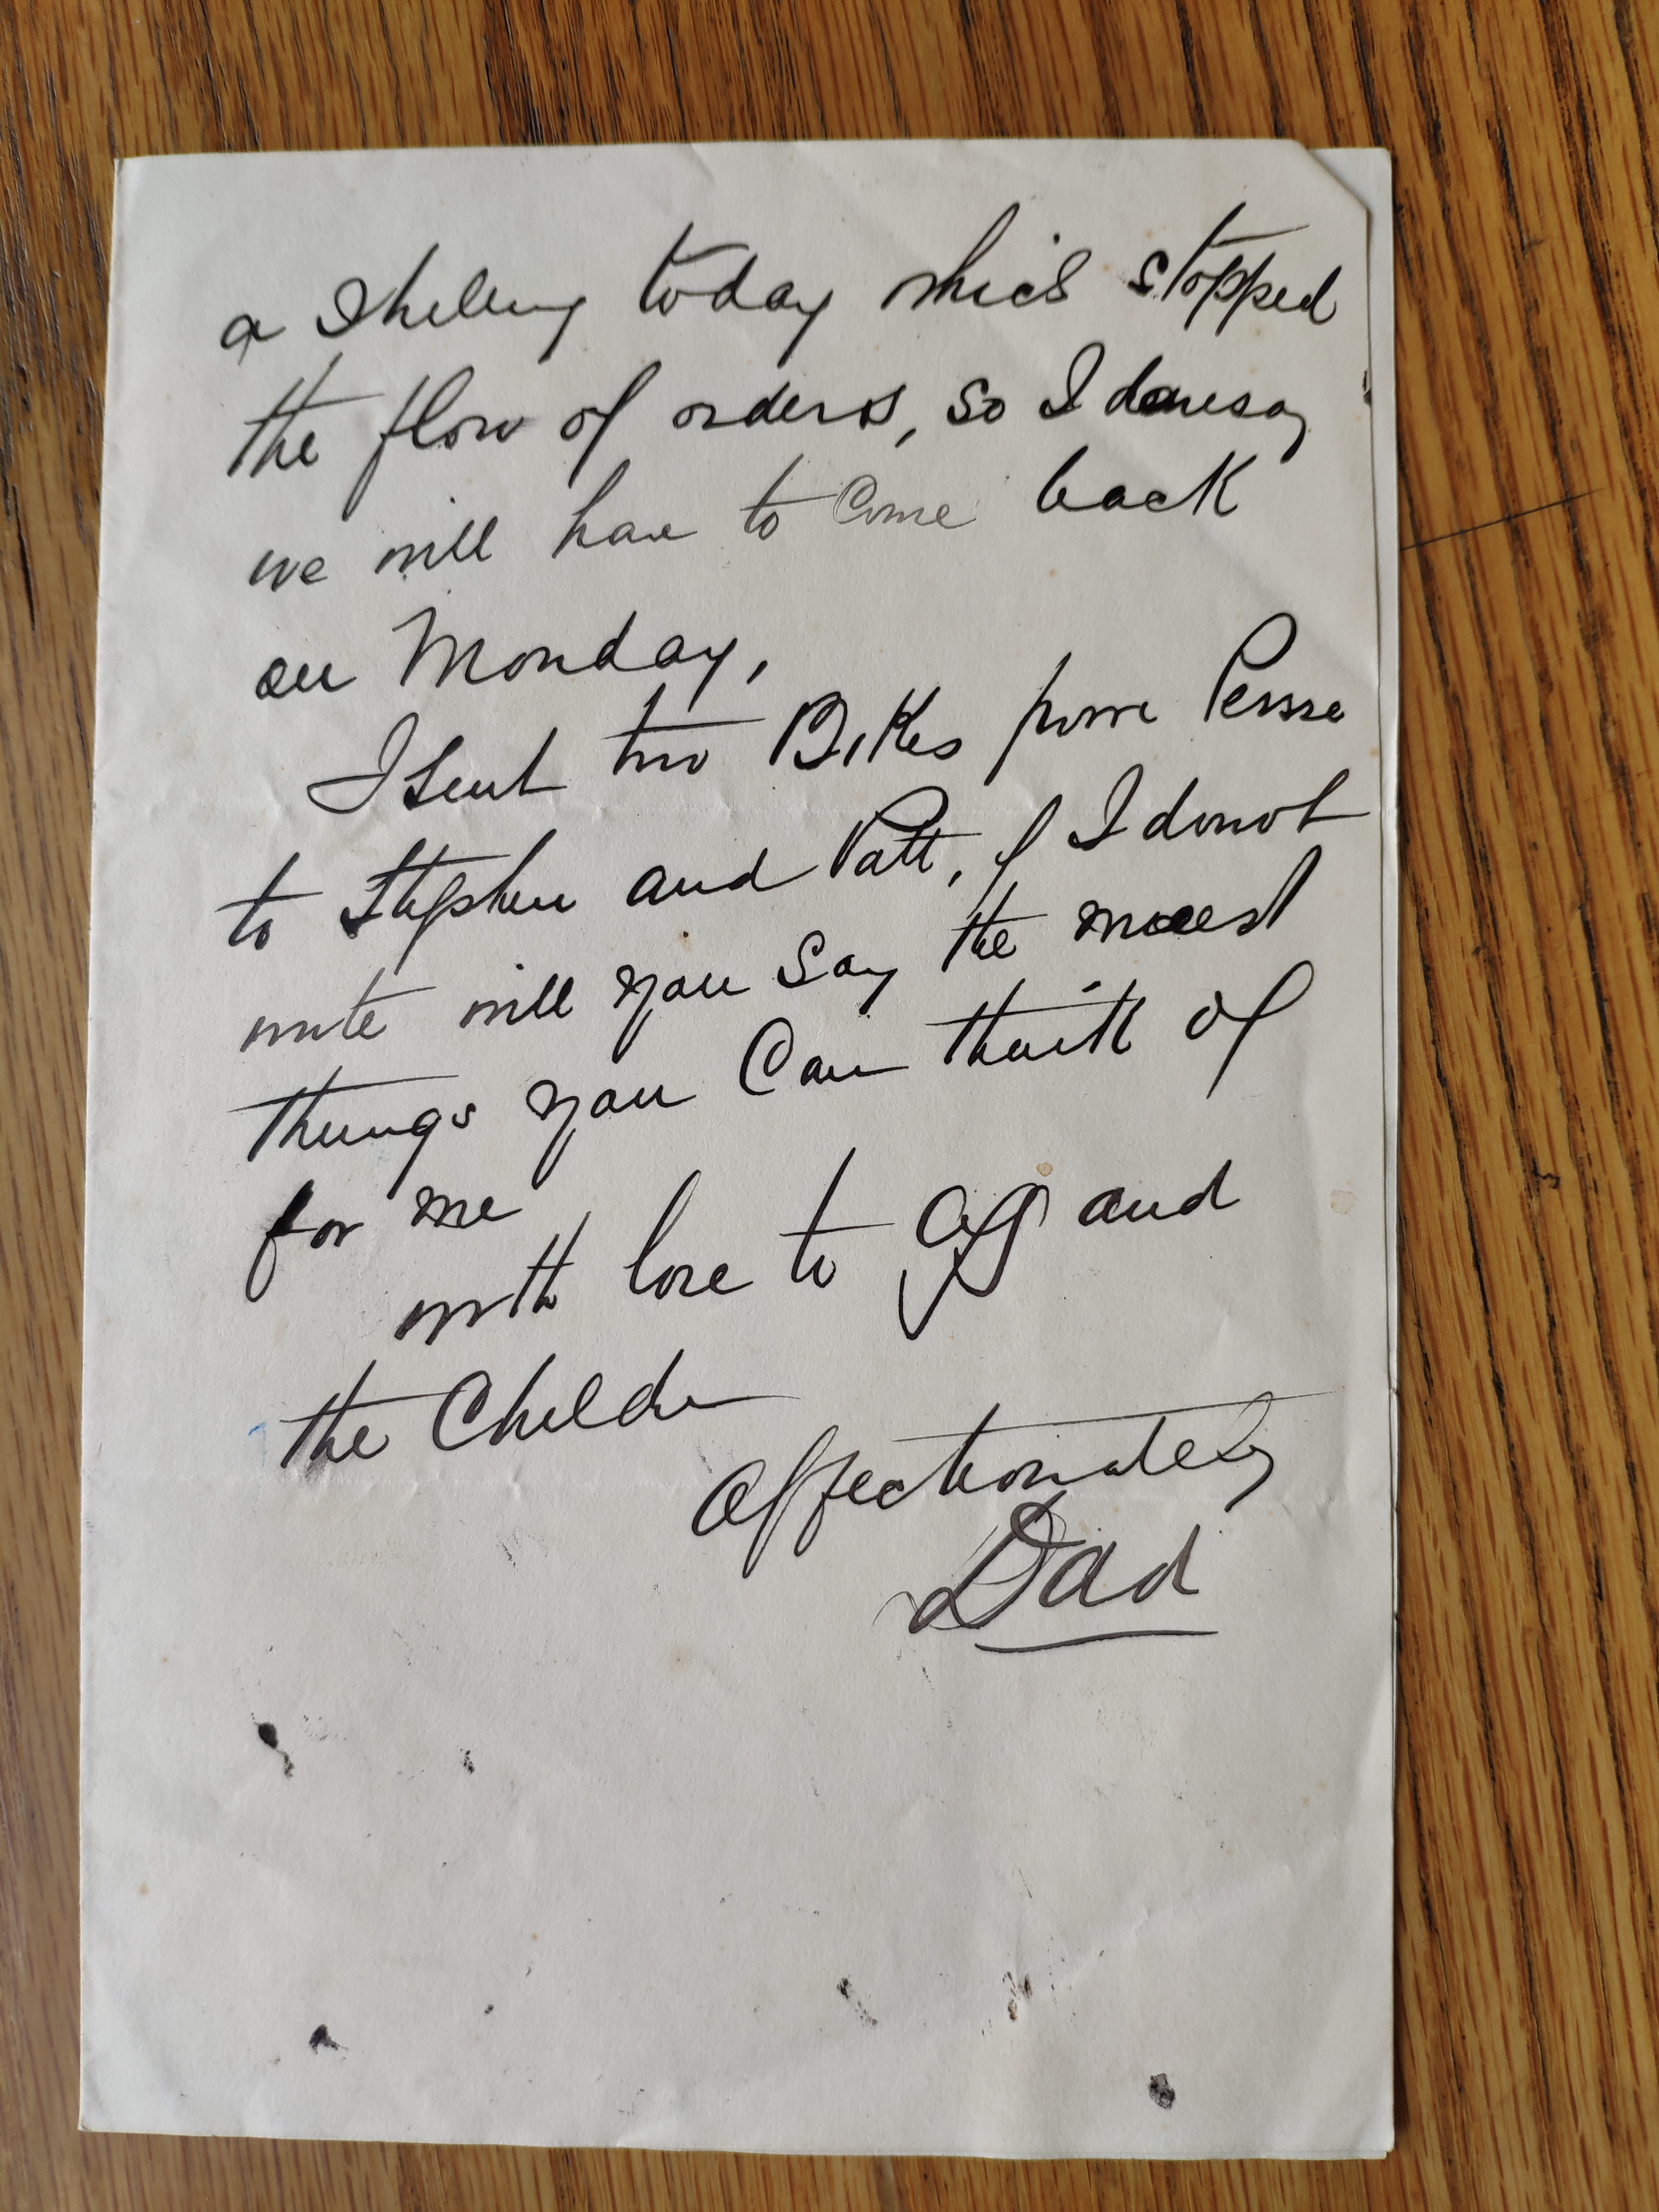 a shilling today which stopped
the flow of orders, so I daresay
we will have to come back
on Monday,
I sent two Bikes from Persse
to Stephen and Patt, if I donot
write will you say the nicest
things you can think of
for me
with love to and
the Children
Affectionately
Dad